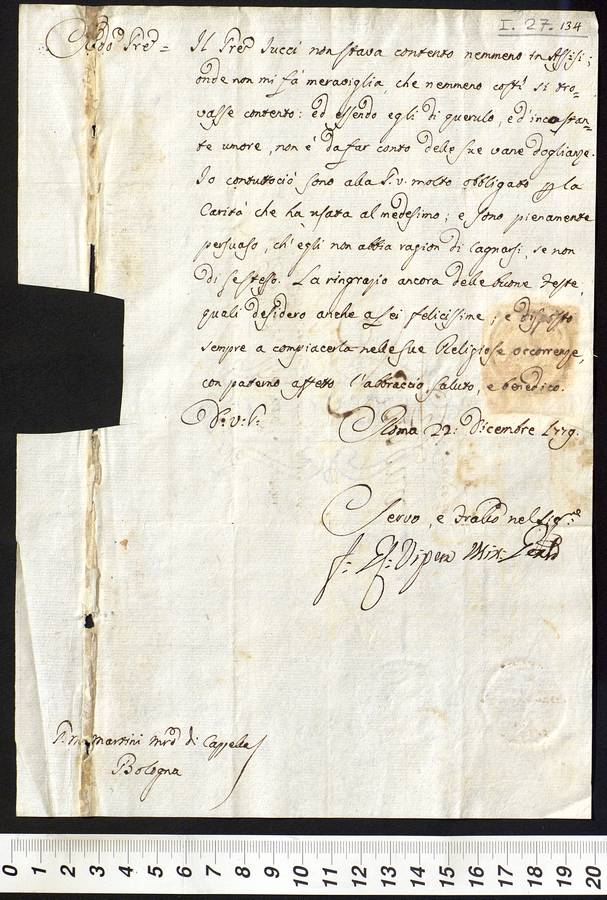 I. 27. 134
Il Pre Jucci non stava contento nemmeno in Assisi;
onde non mi fà meraviglia, che nemmeno costì si tro=
vasse contento: ed essendo egli di querulo, ed incostan=
te umore, non è da far conto delle sue vane doglianze.
Io contuttociò sono alla P.v. molto obbligato per la
Carità che ha usata al medesimo; e sono pienamente
persuaso, ch'egli non abbia ragion di lagnarsi, se non
di se stesso. La ringrazio ancora delle buone Feste,
quali desidero anche a Lei felicissime; e disposto
sempre a compiacerla nelle sue Religiose occorrenze,
con paterno affetto l'abbraccio, saluto, e benedico.
D: v: P:
Roma 22: Dicembre 1779.
Servo, e Frallo nel Sigre
f: Vipera Min: Genle
P. M. Martini Mro di Cappella
Bologna
0 1 2 3 4 5 6 7 8 9 10 11 12 13 14 15 16 17 18 19 20